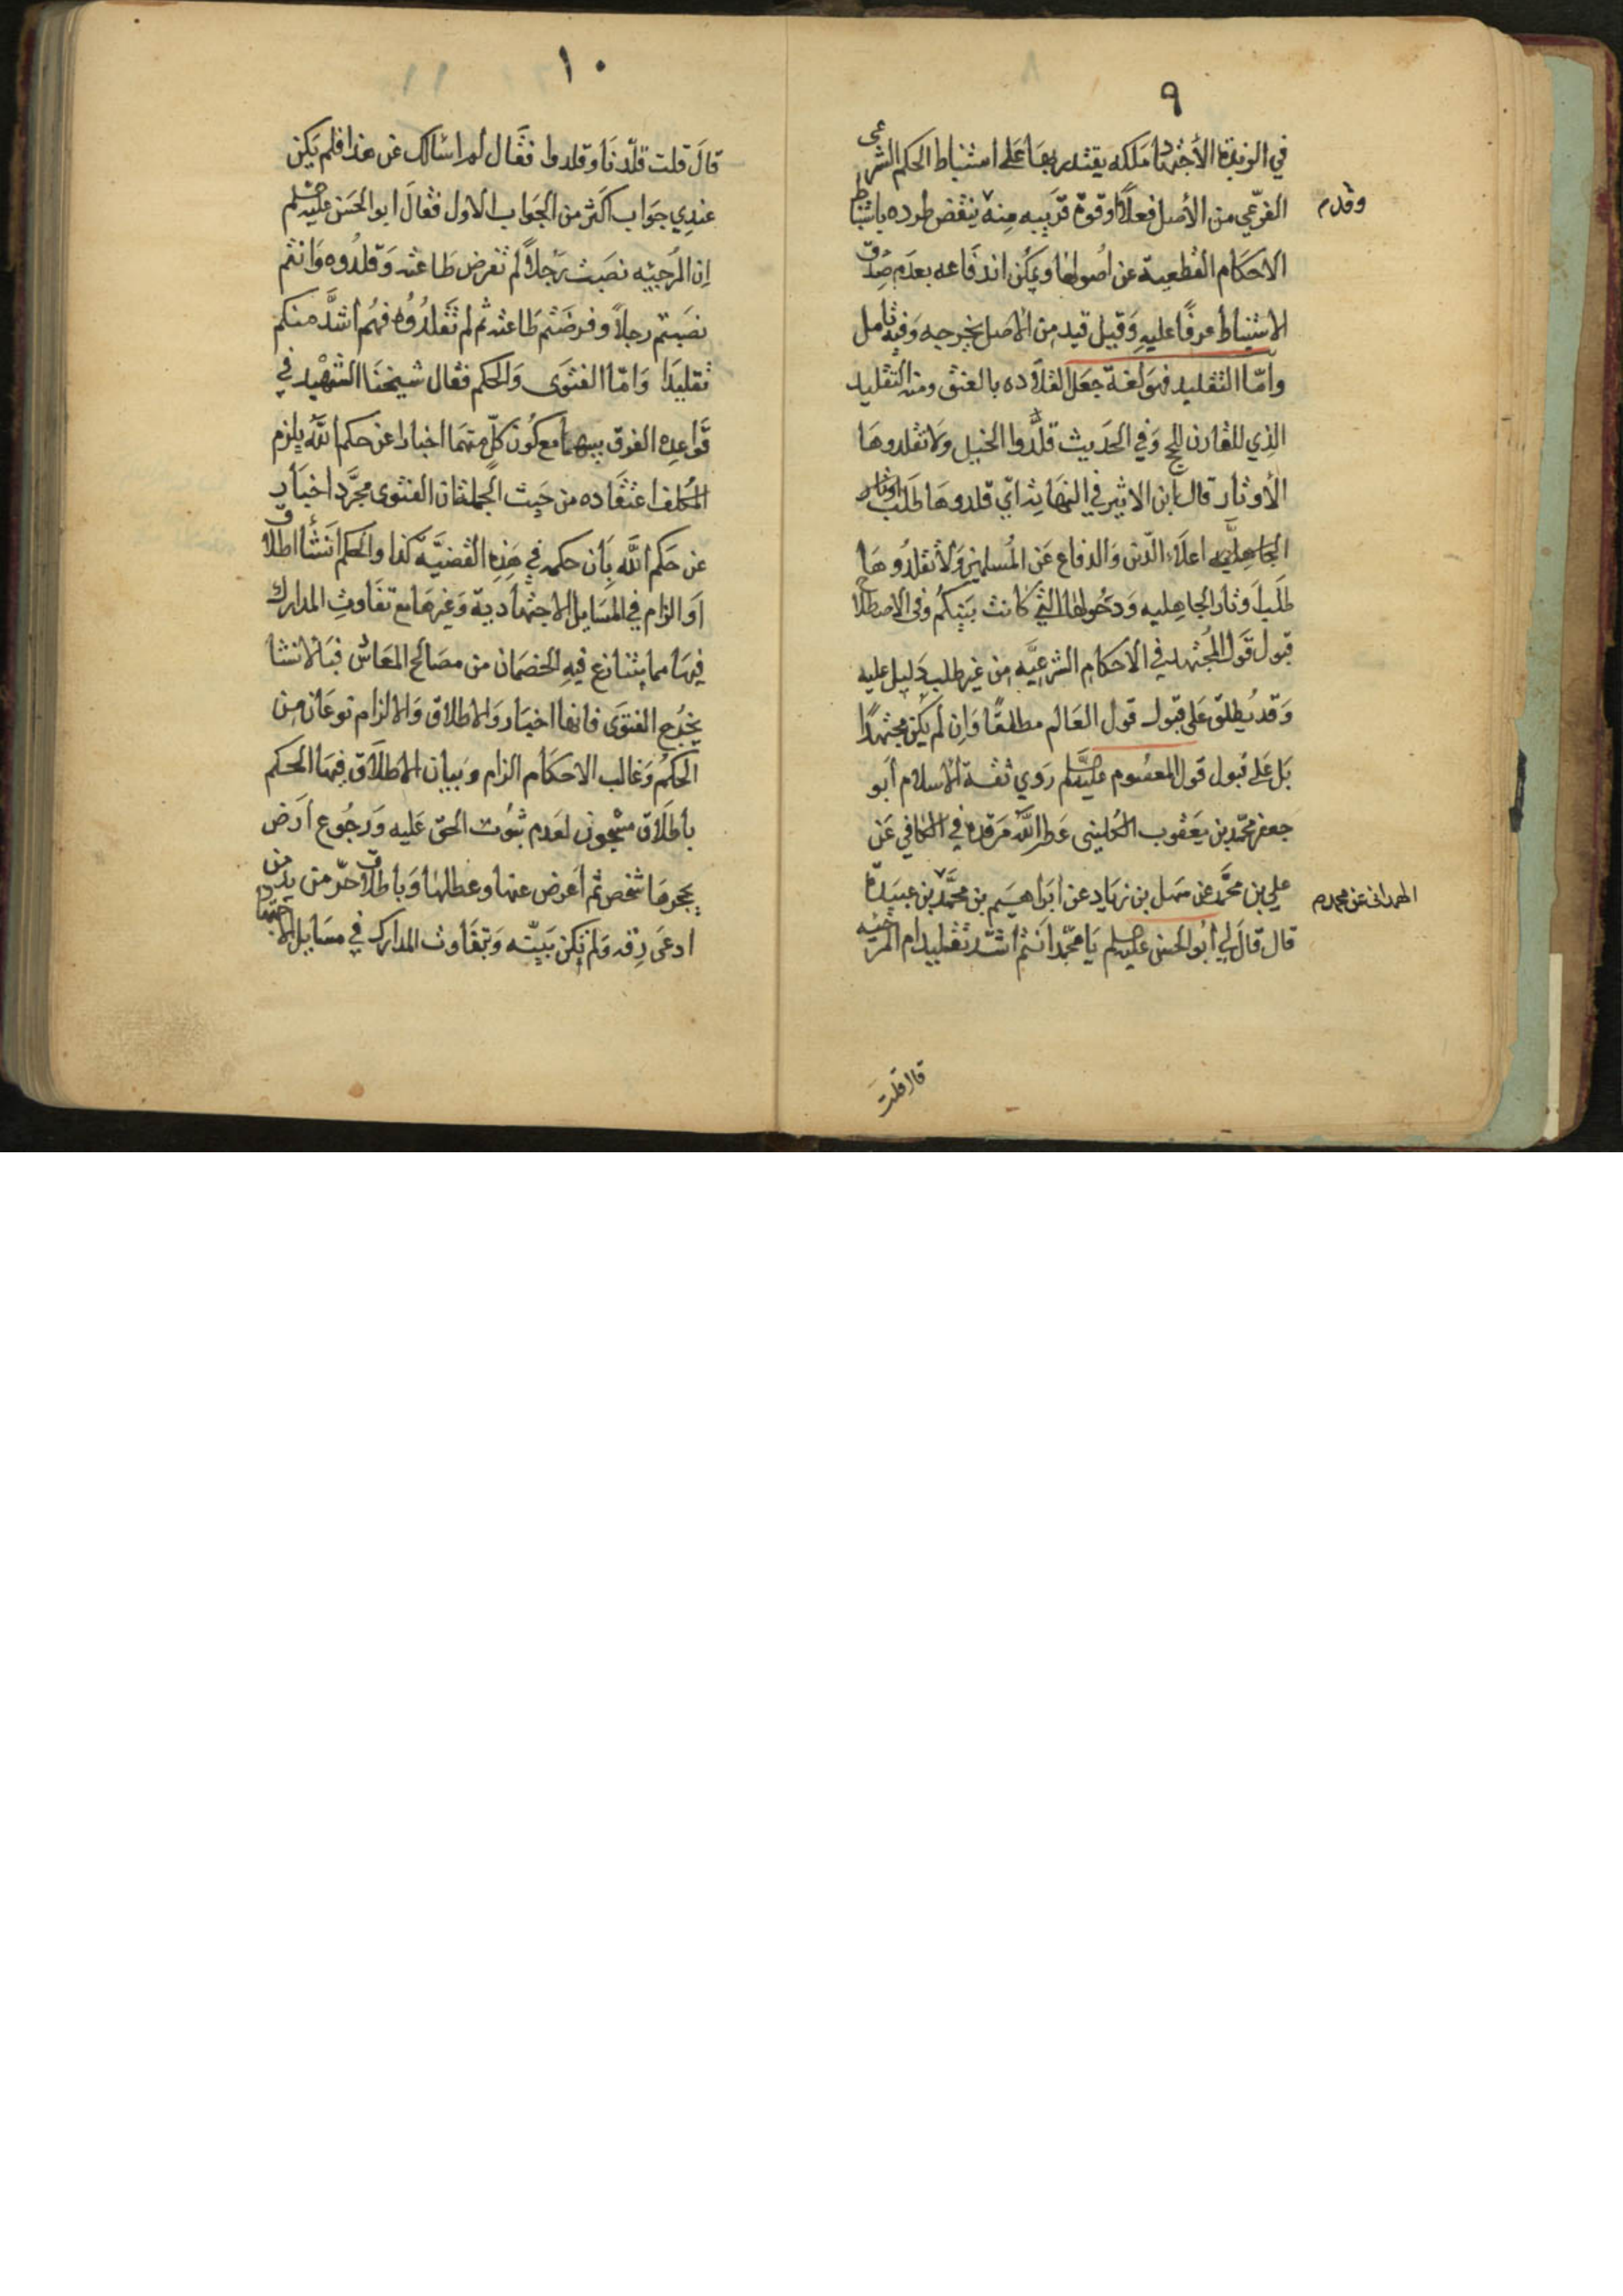 ٩
في الزبدة الأجتهاد ملكه يقتدر بها على استنباط الحكم الشرعى
الفرعي من الأصل فعلاً او قوة قريبه منه ينقض طرده باستنباط
وقدم
الاحكام القطعية عن اصولها ويمكن اندفاعه بعدم صدق
الاستنباط عرفًا عليه وقيل قيد من الاصل يخرجه وفيه تأمل
وامّا التقليد فهو لغة جعل القلاده بالعنق ومنه التقليد
الذي للقارن للحج وفي الحديث قلّدوا الخيل ولا تقلدوها
الأوتار قال ابن الاثير في النهايه اي قلدوها طلب اوتار
الجاهليه اعلاء الدين والدفاع عن المسلمين ولا تقلدوها
طلب اوتار الجاهليه ودخولها التي كانت بينكم وفى الاصطلاح
قبول قول المجتهد في الأحكام الشرعيّه من غير طلب دليل عليه
وقد يُطلق على قبول قول العالم مطلقًا وان لم يكن مجتهدًا
بل على قبول قول المعصوم عليه السلم روي ثقة الاسلام أبو
جعفر محمّد بن يعقوب الكلينى عطر الله مرقده في الكافي عن
علي بن محمّد عن سهل بن زياد عن ابراهيم بن محمّد بن عبيدة
الهمدانى عن محمد م
قال قال لي أبو الحسن عليه السلم يا محمّد أنتم اشد تقليد ام المرجئيه
قال قلت
١٠
قال قلت قلّدنا وقلدوا فقال لم اسالك عن هذا فلم يكن
عندي جواب اكثر من الجواب الاول فقال ابو الحسن عليه السلم
ان المرجئيه نصبت رجلاً لم تفرض طاعته وقلدُوه وانتم
نصبتم رجلاً وفرضتم طاعته ثم لم تقلدُوه فهُم أشدَّ منكم
تقليدا وامّا الفتوى والحكم فقال شيخنا الشهيد في
قواعده الفرق بينهما مع كون كلّ منهما اخبارا عن حكم الله يلزم
المكلف اعتقاده من حيث الجملة ان الفتوى مجرّد اخبار
عن حكم الله بأن حكمه في هذه القضيّه كذا والحكم انشأ اطلاق
او الزام في المسايل الاجتهاديه وغيرها مع تقاوت المدارك
فيها مما يتنازع فيه الخصمان من مصالح المعاش فبالانشا
يخرج الفتوى فانها اخبار والاطلاق والالزام نوعان من
الحكم وغالب الاحكام الزام وبيان الاطلاق فيها الحكم
باطلاق مسجون لعدم ثبوت الحق عليه ورجوع أرض
يحجرها شخص ثم اعرض عنها وعطلها وباطلاق حرّ من يد من
ادعى رقه ولم تكن بيّنه وبتقاوت المدارك في مسايل الاجتهاد